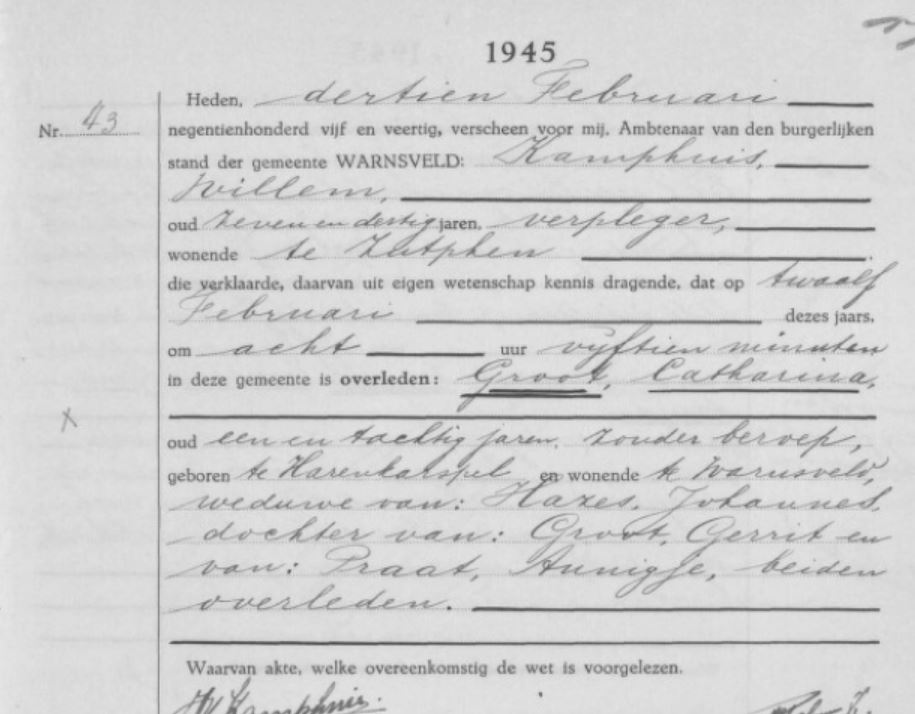 1945
Heden, dertien Februari
Nr. 43
negentienhonderd vijf en veertig, verscheen voor mij, Ambtenaar van den burgerlijken
stand der gemeente WARNSVELD: Kamphuis,
Willem,
oud zeven en dertig jaren, verpleger,
wonende te Zutphen
die verklaarde, daarvan uit eigen wetenschap kennis dragende, dat op twaalf
Februari dezes jaars,
om acht uur vijftien minuten
in deze gemeente is overleden: Groot, Catharina,
oud een en tachtig jaren, zonder beroep,
geboren te Harenkarspel en wonende te Warnsveld,
weduwe van: Hazes, Johannes,
dochter van: Groot, Gerrit en
van: Praat, Annigje, beiden
overleden.
Waarvan akte, welke overeenkomstig de wet is voorgelezen.
W Kamphuis.